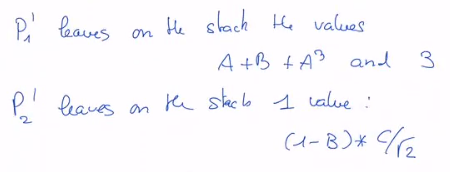 P₁' leaves on the stack the values
A + B + A³ and 3
P₂' leaves on the stack 1 value :
(1-B)* C/√2